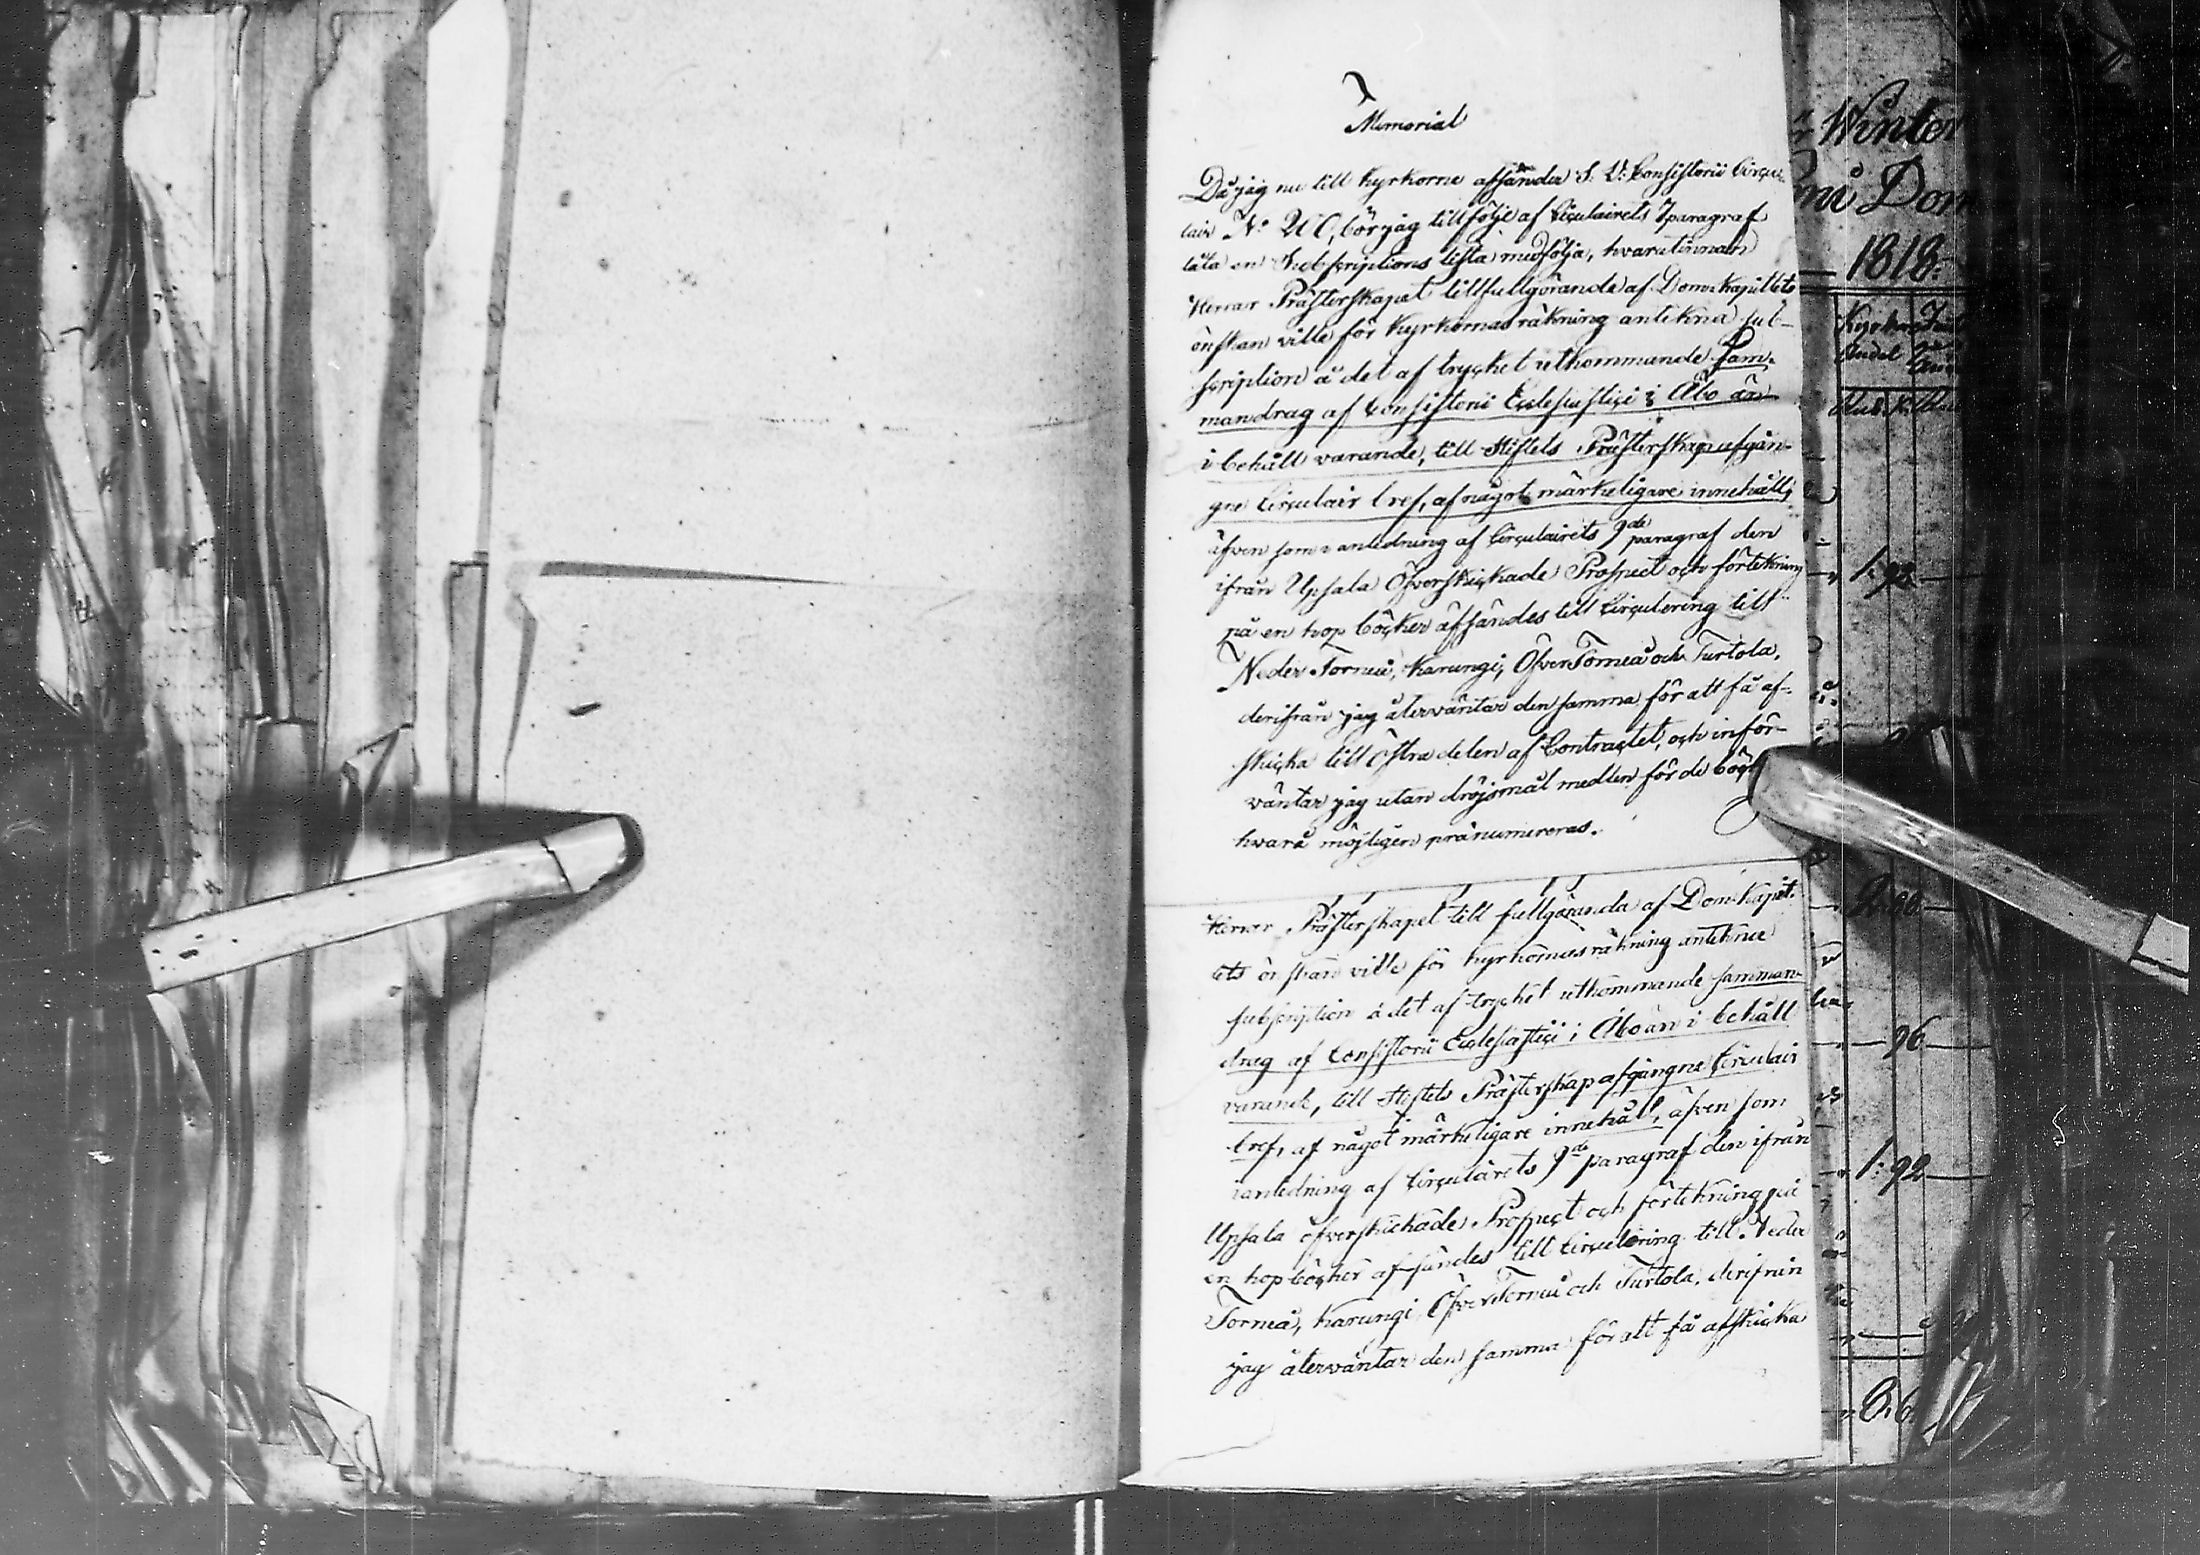 Memorial
Då jag nu till kyrkorne afsänder S. V. Consistorii Circu-
lair N:o 200, bör jag till följe af Circulairets 7 paragraf
låta en Subscriptions lista medfölja, hvarutinnan
Herrar Prästerskapet till fullgörande af Dom-Kapitlets
önskan ville för kyrkornas räkning antekna sub-
scription å det af trycket utkommande Sam-
mandrag af Consistorii Ecclesiastici i Åbo än
i behåll varande, till Stiftets Prästerskap afgån-
gne Circulair bref, af något märkeligare innehåll;
äfven som i anledning af Circulairets 9de paragraf den
ifrån Upsala Öfverskickade Prospect och förtekning
på en hop böcker afsändes till Circulering till
Neder Torneå, Karungi, ÖfverTorneå och Turtola,
derifrån jag återväntar den samma för att få af-
skicka till Östra delen af Contractet, och inför-
väntar jag utan dröjsmål medlen för de böck
hvarå möjligen pränumereras.
Herrar Prästerskapet till fullgöranda af Dom-Kapit-
lets önskan ville för kyrkornas räkning antekna
subscription å det af trycket utkommande samman-
drag af Consistorii Ecclesiastici i Åbo än i behåll
varande, till Stiftets Prästerskap afgångne Circulair
bref, af något märkeligare innehåll, äfven som
i anledning af Circulärets 9de paragraf den ifrån
Upsala öfverskickade Prospect och förtekning på
en hop böcker afsändes till Circulering till Neder
Torneå, Karungi, ÖfverTorneå och Turtola, derifrån
jag återväntar den samma för att få afskicka
Winter
Dom
1818:
Kyrkans
Andel
1: 92
96
1: 92